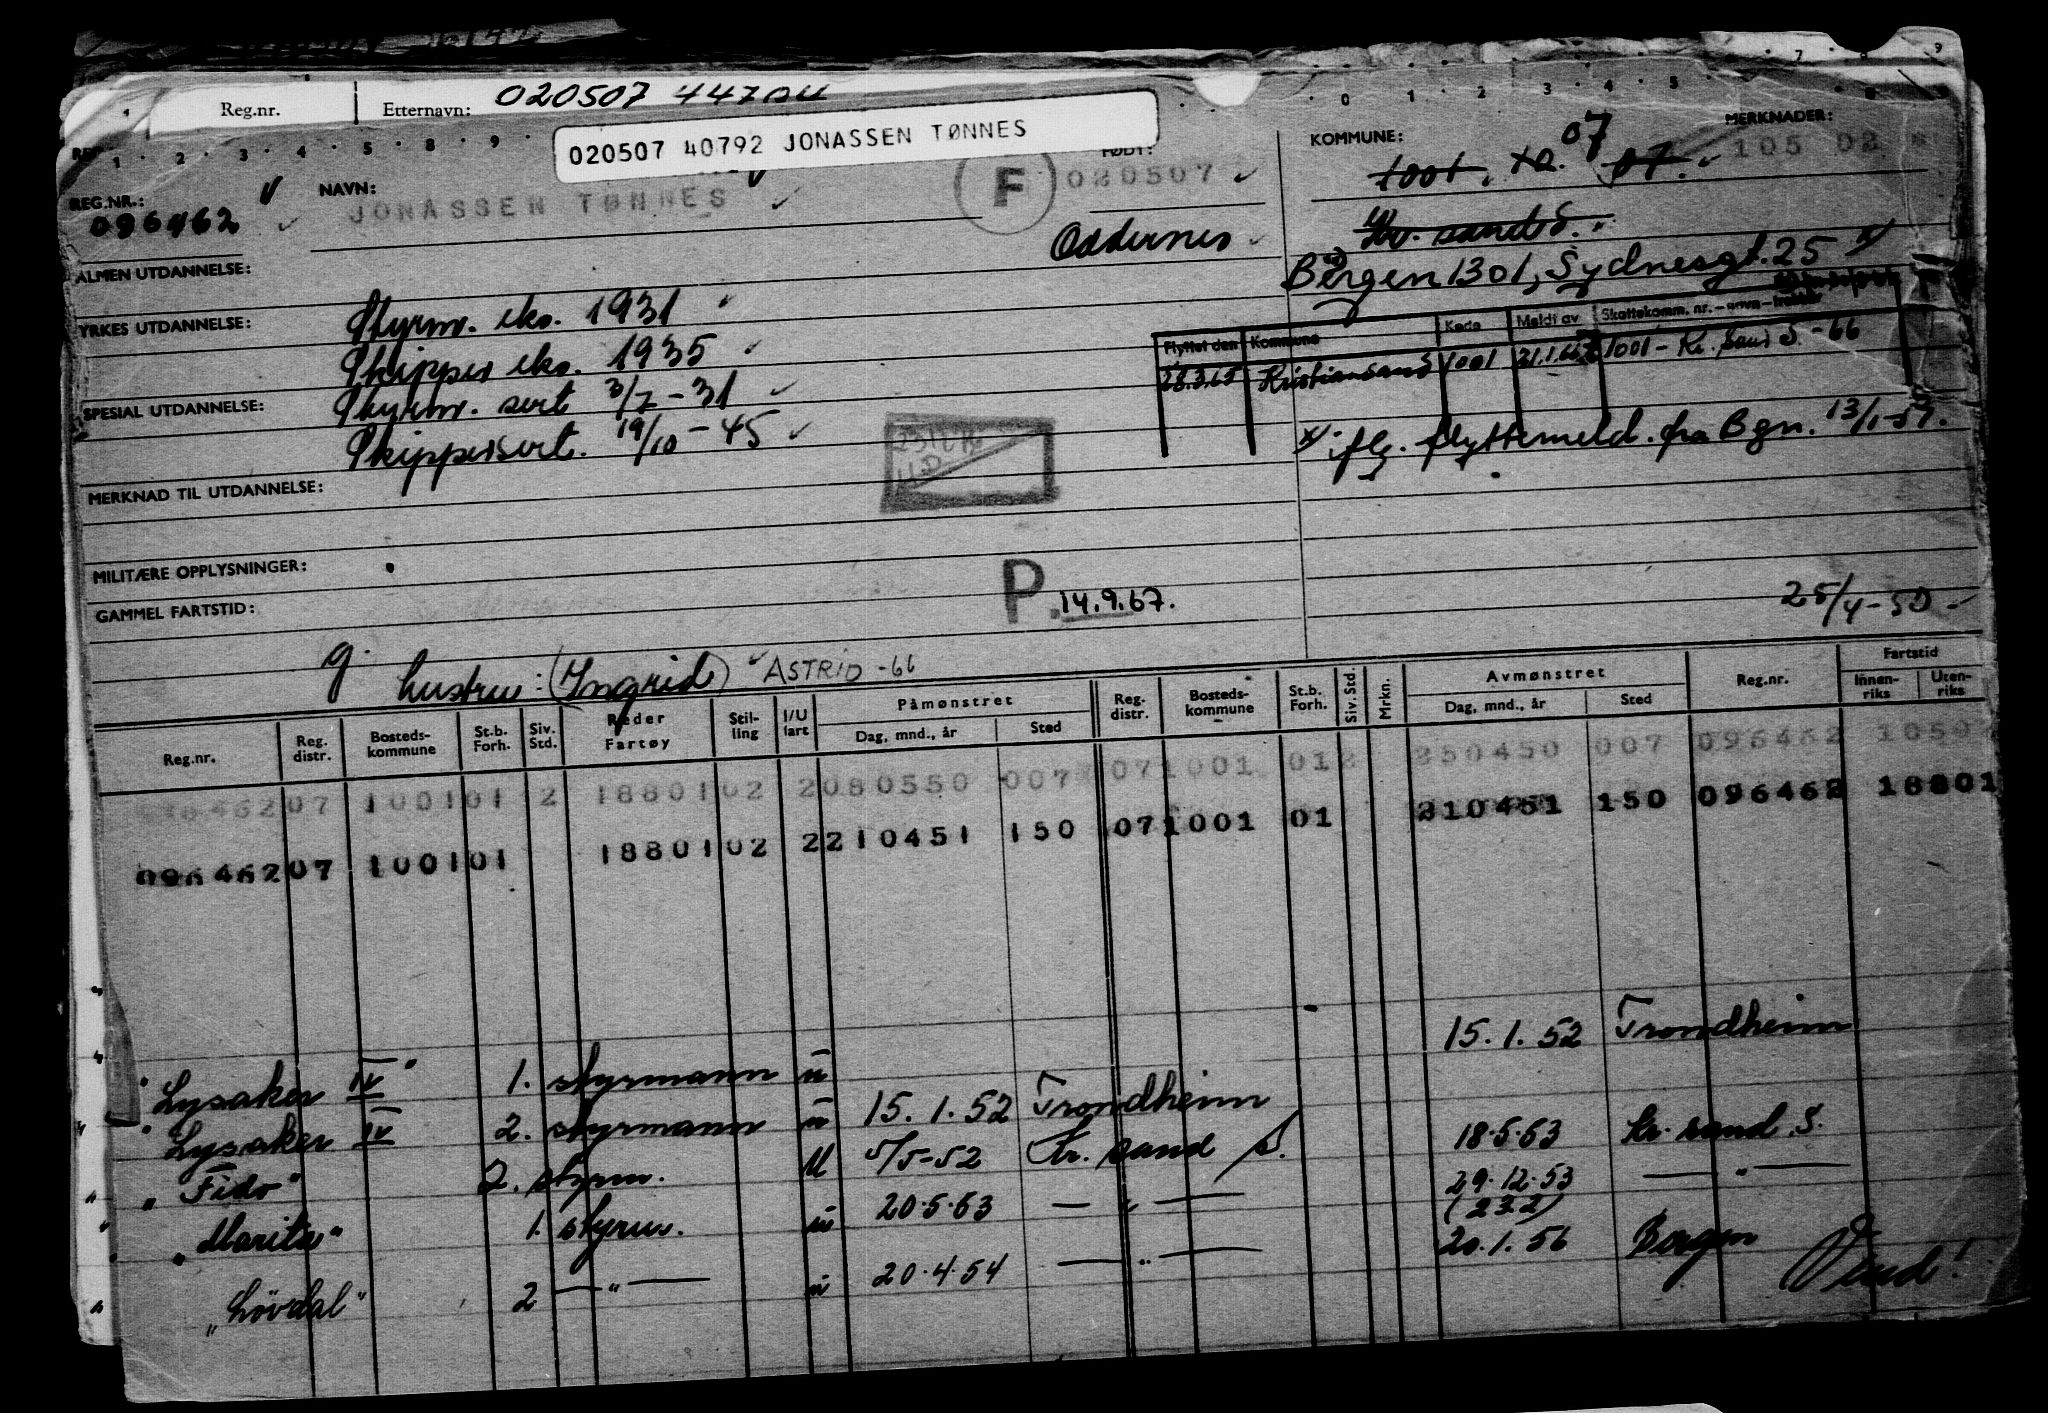 Reg.nr. Etternavn: 020507
020507 40792 JONASSEN TØNNES
REG.NR.: 096462
NAVN: JONASSEN TØNNES
F
FØDT: 020507
Oddernes
KOMMUNE: 1001, 07
MERKNADER: 105 02
Kr. sand S.
Bergen 1301, Sydnesgt. 25 x/
ALMEN UTDANNELSE:
YRKES UTDANNELSE: Styrm. eks. 1931
Skipper eks. 1935
SPESIAL UTDANNELSE: Styrm. sert 3/7-31
Skippersert. 19/10-45
Flyttet den Kommune Kode Meldt av Skattekomm. nr.
Kristiansand 1001 1001 - Kr. sand S -66
x/ iflg. flyttemeld. fra Bgn. 13/1-57.
MERKNAD TIL UTDANNELSE:
MILITÆRE OPPLYSNINGER:
P. 14.9.67.
GAMMEL FARTSTID:
25/4-50
g. hustru: (Ingrid) ASTRID -66
Reg.nr. Reg. distr. Bosteds-kommune St.b. Forh. Siv. Std. Reder Fartøy Stil-ling I/U fart Påmønstret Dag, mnd., år Sted Reg. distr. Bosteds-kommune St.b. Forh. Siv. Std. Mrkn. Avmønstret Dag, mnd., år Sted Reg.nr. Fartstid Innen-riks Uten-riks
096462 07 1001 01 2 18801 02 2 080550 007 07 1001 01 2 250450 007 096462 1050
096462 07 1001 01 18801 02 2 210451 150 07 1001 01 210451 150 096462 18801
"Lysaker IV" 1. styrmann u 15.1.52 Trondheim
"Lysaker IV 2. styrmann u 15.1.52 Trondheim
"Fido" 2. styrm. U 5/5-52 Kr. sand S. 18.5.53 Kr. sand S.
"Marita" 1. styrm. u 20.5.53 — " — 29.12.53 — " —
(232)
"Lövdal" 2 — " — u 20.4.54 — " — 20.1.56 Bergen
Vend!